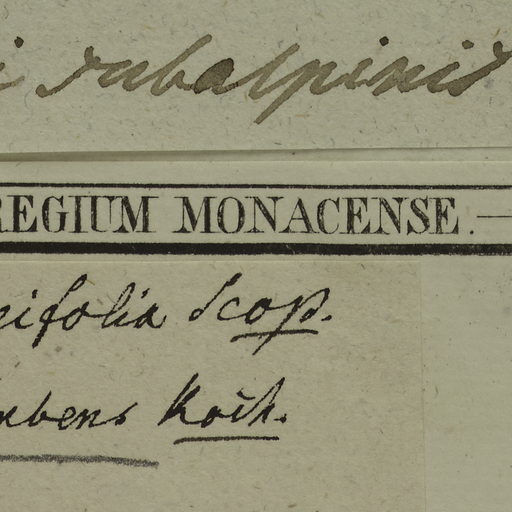 i subalpinis
REGIUM MONACENSE.—
ifolia Scop.
bens Koch.